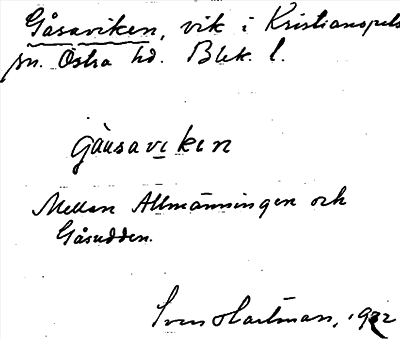 Gåsaviken, vik i Kristianopels
sn. Östra hd. Blek. l.
gåusaviken
Mellan Allmänningen och
Gåsudden.
Sven Hartman, 1922